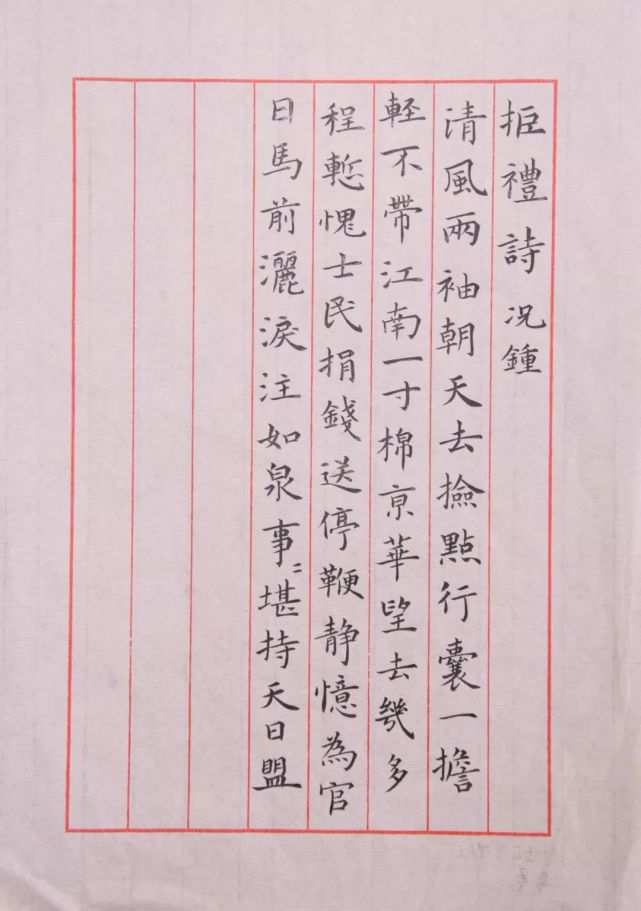 拒禮詩 况鍾
清風兩袖朝天去撿點行囊一擔
軽不帶江南一寸棉京華望去幾多
程慙愧士民捐錢送停鞭静憶為官
日馬前灑淚注如泉事〻堪持天日盟